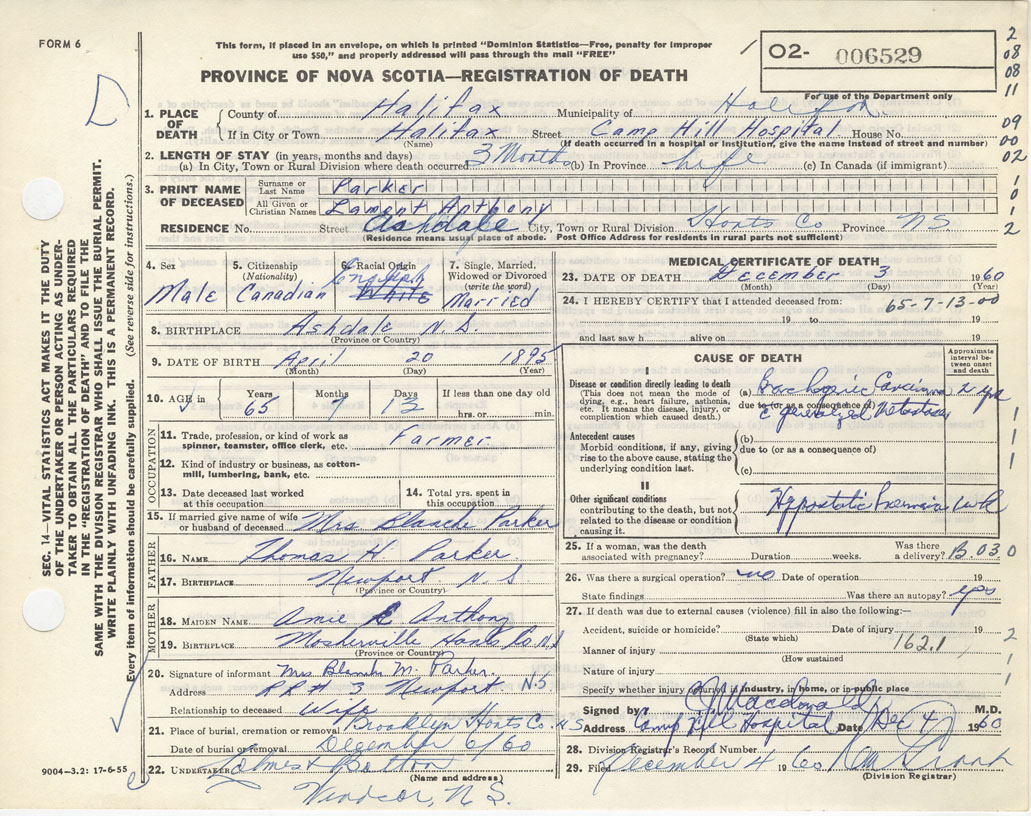 FORM 6
This form, if placed in an envelope, on which is printed "Dominion Statistics—Free, penalty for improper
use $50," and properly addressed will pass through the mail "FREE"
PROVINCE OF NOVA SCOTIA—REGISTRATION OF DEATH
O2- 006529
For use of the Department only
2
08
08
11
09
00
02
1
0
1
2
1. PLACE OF DEATH
County of Halifax Municipality of Halifax
If in City or Town Halifax Street Camp Hill Hospital House No.
(Name) (If death occurred in a hospital or institution, give the name instead of street and number)
2. LENGTH OF STAY (in years, months and days)
(a) In City, Town or Rural Division where death occurred 3 Months (b) In Province life (c) In Canada (if immigrant)
3. PRINT NAME OF DECEASED
Surname or Last Name Parker
All Given or Christian Names Lamont Anthony
RESIDENCE No. Street Ashdale City, Town or Rural Division Hants Co Province NS
(Residence means usual place of abode. Post Office Address for residents in rural parts not sufficient)
4. Sex Male
5. Citizenship (Nationality) Canadian
6. Racial Origin English White
7. Single, Married, Widowed or Divorced (write the word) Married
8. BIRTHPLACE Ashdale N.S.
(Province or Country)
9. DATE OF BIRTH April 20 1895
(Month) (Day) (Year)
10. AGE in Years 65 Months 7 Days 13 If less than one day hrs. or min.
OCCUPATION
11. Trade, profession, or kind of work as spinner, teamster, office clerk, etc. Farmer
12. Kind of industry or business, as cotton-mill, lumbering, bank, etc.
13. Date deceased last worked at this occupation
14. Total yrs. spent in this occupation
15. If married give name of wife or husband of deceased Mrs Blanche Parker
FATHER
16. NAME Thomas H. Parker
17. BIRTHPLACE Newport N S
(Province or Country)
MOTHER
18. MAIDEN NAME Amie E Anthony
19. BIRTHPLACE Mosherville Hants Co N.S
(Province or Country)
20. Signature of informant Mrs Blanche M. Parker
Address RR# 3 Newport N.S
Relationship to deceased Wife
21. Place of burial, cremation or removal Brooklyn Hants Co. N S
Date of burial or removal December 6/60
22. UNDERTAKER
(Name and address)
Windsor, N.S.
9004—3.2: 17-6-55
SEC. 14—VITAL STATISTICS ACT MAKES IT THE DUTY
OF THE UNDERTAKER OR PERSON ACTING AS UNDER-
TAKER TO OBTAIN ALL THE PARTICULARS REQUIRED
IN THE "REGISTRATION OF DEATH" AND TO FILE THE
SAME WITH THE DIVISION REGISTRAR WHO SHALL ISSUE THE BURIAL PERMIT.
WRITE PLAINLY WITH UNFADING INK. THIS IS A PERMANENT RECORD.
Every item of information should be carefully supplied. (See reverse side for instructions.)
MEDICAL CERTIFICATE OF DEATH
23. DATE OF DEATH December 3 1960
(Month) (Day) (Year)
24. I HEREBY CERTIFY that I attended deceased from: 65-7-13-00
19 to 19
and last saw h alive on 19
CAUSE OF DEATH
Approximate interval between onset and death
I
Disease or condition directly leading to death
(This does not mean the mode of dying, e.g., heart failure, asthenia, etc. It means the disease, injury, or complication which caused death.)
(a) Carcinoma
due to (or as a consequence of)
generalized
Antecedent causes
Morbid conditions, if any, giving rise to the above cause, stating the underlying condition last.
(b)
due to (or as a consequence of)
(c)
1
1
1
II
Other significant conditions
contributing to the death, but not related to the disease or condition causing it.
Hypostatic
25. If a woman, was the death associated with pregnancy? Duration weeks. Was there a delivery? B 030
26. Was there a surgical operation? no Date of operation 19
State findings Was there an autopsy? yes
27. If death was due to external causes (violence) fill in also the following:—
Accident, suicide or homicide? Date of injury 19
(State which)
Manner of injury 162.1
(How sustained)
Nature of injury
2
1
1
Specify whether injury occurred in industry, in home, or in public place
Signed by Macdonald M.D.
Address Camp Hill Hospital Date Dec 4 1960
28. Division Registrar's Record Number
29. Filed December 4 1960
(Division Registrar)